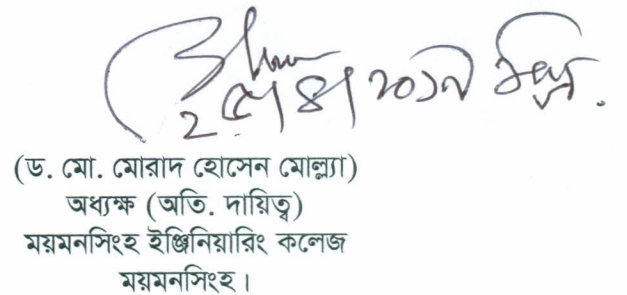 ২৫/৪/২০১৯ খ্রি.
(ড. মো. মোরাদ হোসেন মোল্ল্যা)
অধ্যক্ষ (অতি. দায়িত্ব)
ময়মনসিংহ ইঞ্জিনিয়ারিং কলেজ
ময়মনসিংহ।